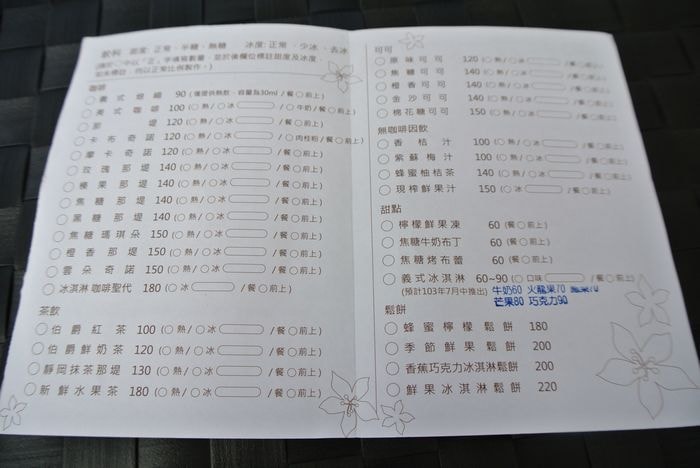 飲料 甜度: 正常、半糖、無糖 冰度: 正常、少冰、去冰
咖啡
義式濃縮 90 (僅提供熱飲，容量為30ml /餐○前上)
美式咖啡 100 (○熱/○冰 /○牛奶/餐○前上)
那堤 120 (○熱/○冰 /餐○前上)
卡布奇諾 120 (○熱/○冰 /○肉桂粉/餐○前上)
摩卡奇諾 120 (○熱/○冰 /餐○前上)
玫瑰那堤 140 (○熱/○冰 /餐○前上)
榛果那堤 140 (○熱/○冰 /餐○前上)
焦糖那堤 140 (○熱/○冰 /餐○前上)
黑糖那堤 140 (○熱/○冰 /餐○前上)
焦糖瑪琪朵 150 (○熱/○冰 /餐○前上)
橙香那堤 150 (○熱/○冰 /餐○前上)
雲朵奇諾 150 (○熱/○冰 /餐○前上)
冰淇淋咖啡聖代 180 (○冰 /餐○前上)
茶飲
伯爵紅茶 100 (○熱/○冰 /餐○前上)
伯爵鮮奶茶 120 (○熱/○冰 /餐○前上)
靜岡抹茶那堤 130 (○熱/○冰 /餐○前上)
新鮮水果茶 180 (○熱/○冰 /餐○前上)
可可
原味可可 120 (○熱/○冰 /餐○前上)
焦糖可可 140 (○熱/○冰 /餐○前上)
橙香可可 140 (○熱/○冰 /餐○前上)
金沙可可 140 (○熱/○冰 /餐○前上)
棉花糖可可 150 (○熱/○冰 /餐○前上)
無咖啡因飲
香桔汁 100 (○熱/○冰 /餐○前上)
紫蘇梅汁 100 (○熱/○冰 /餐○前上)
蜂蜜柚桔茶 140 (○熱/○冰 /餐○前上)
現榨鮮果汁 150 (○冰 /餐○前上)
甜點
檸檬鮮果凍 60 (餐○前上)
焦糖牛奶布丁 60 (餐○前上)
焦糖烤布蕾 60 (餐○前上)
義式冰淇淋 60~90 (○口味 /餐○前上)
(預計103年7月中推出) 牛奶60 火龍果70
芒果80 巧克力90
鬆餅
蜂蜜檸檬鬆餅 180
季節鮮果鬆餅 200
香蕉巧克力冰淇淋鬆餅 200
鮮果冰淇淋鬆餅 220